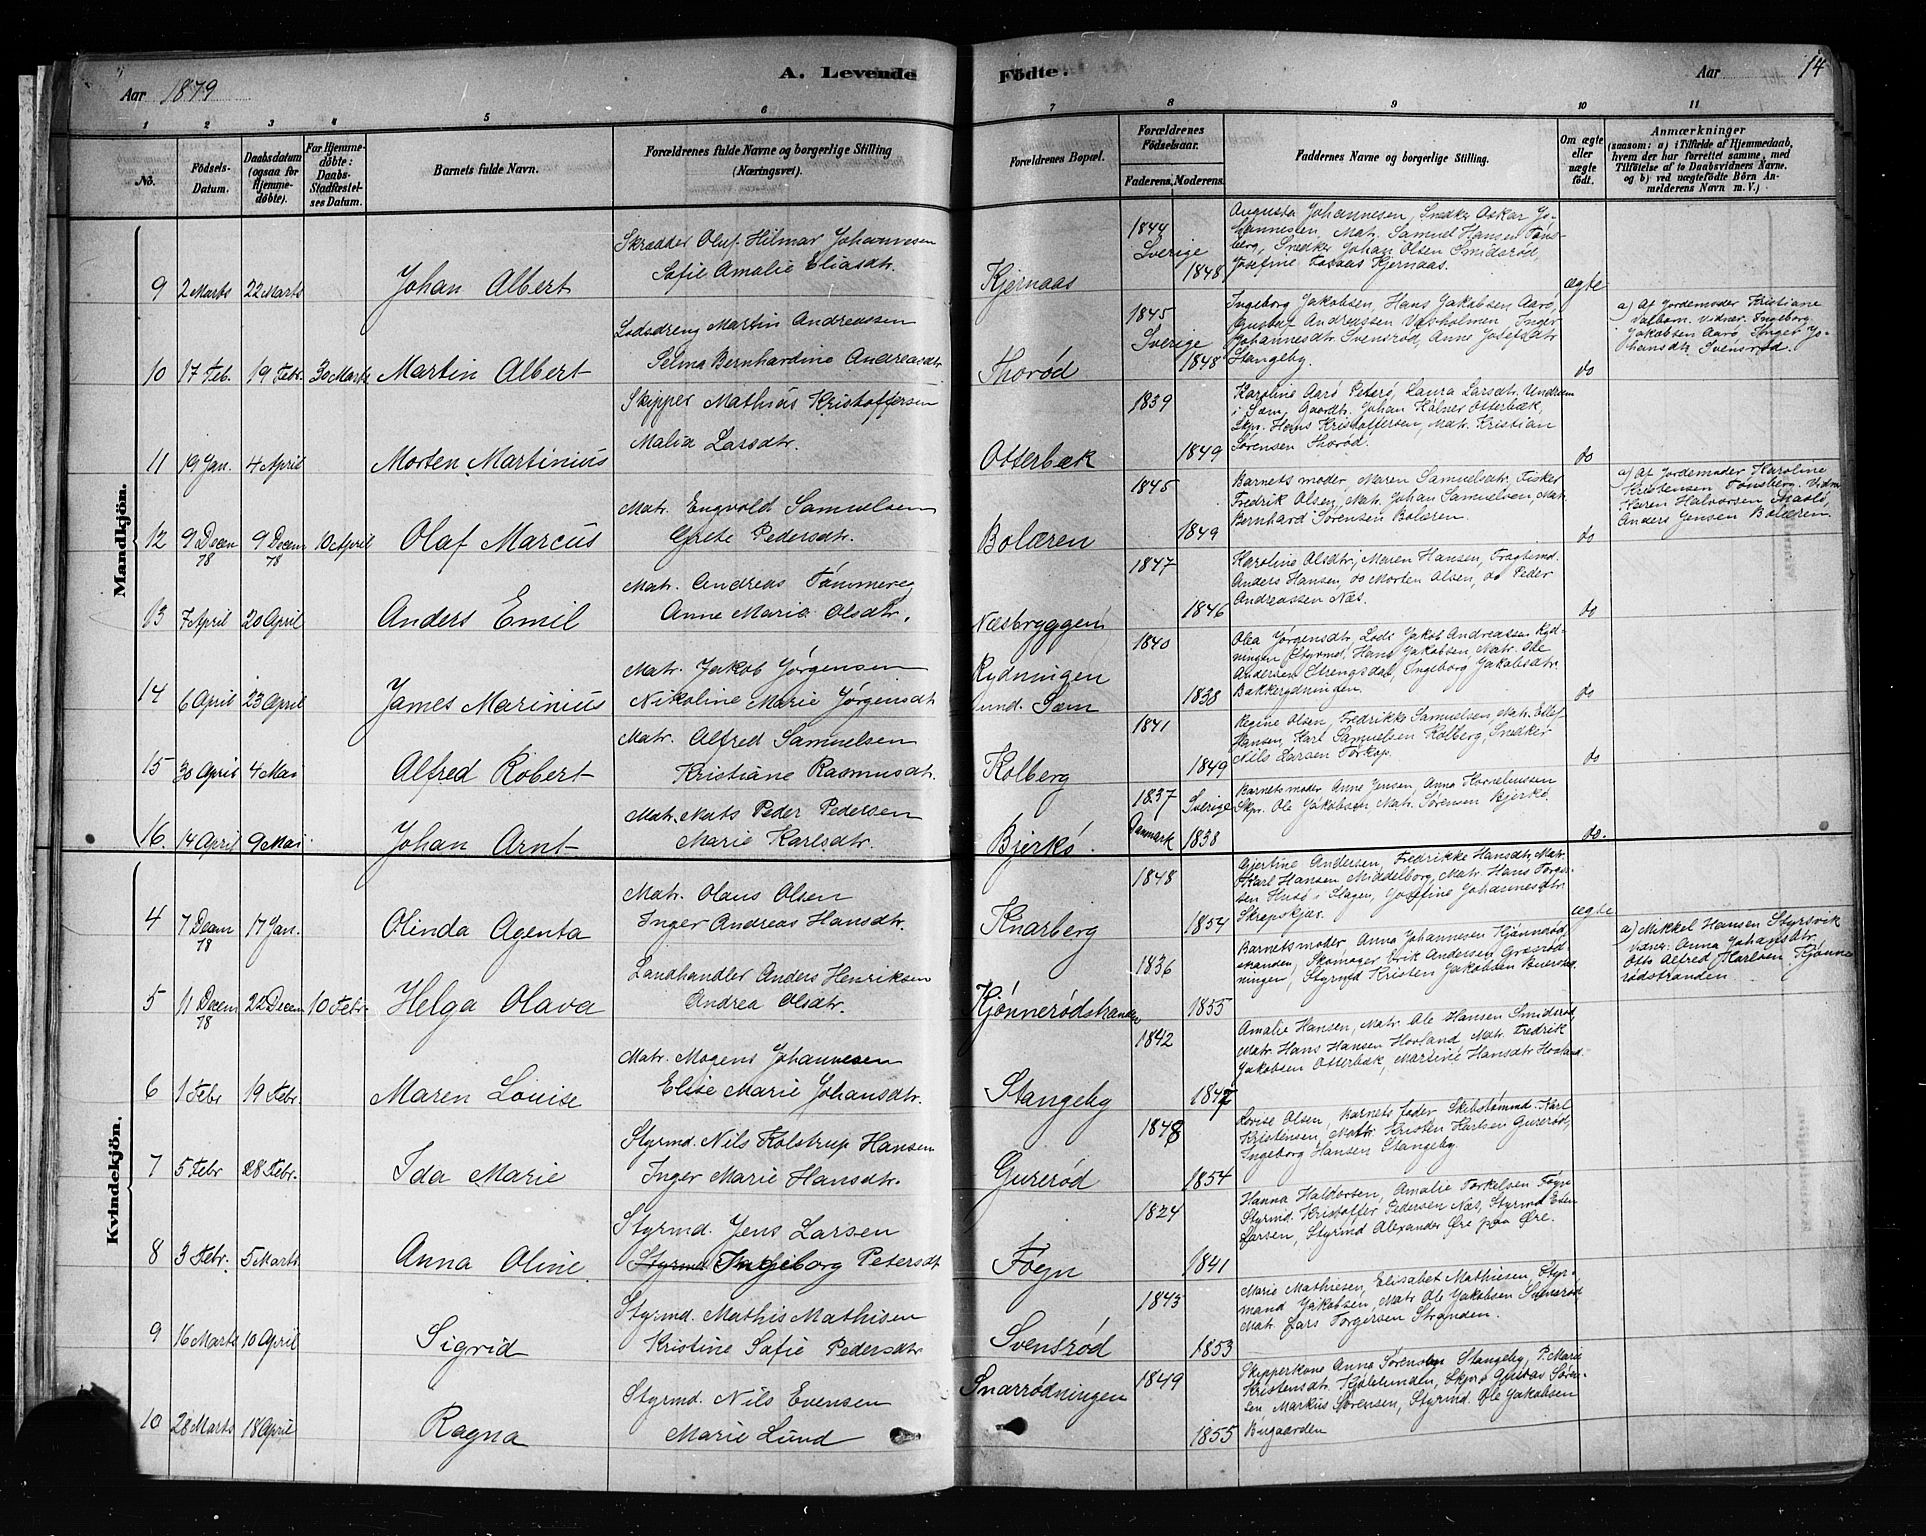 A. Levende Fødte.
Aar 1879
Aar
14
1 2 3 4 5 6 7 8 9 10 11
No.
Fødsels-Datum.
Daabsdatum (ogsaa for Hjemme-døbte).
For Hjemme-døbte: Daabs-Stadfæstel-ses Datum.
Barnets fulde Navn.
Forældrenes fulde Navne og borgerlige Stilling (Næringsvei).
Forældrenes Bopæl.
Forældrenes Fødselsaar.
Faderens. Moderens.
Faddernes Navne og borgerlige Stilling.
Om ægte eller uægte født.
Anmærkninger
(saasom: a) i Tilfælde af Hjemmedaab, hvem der har forrettet samme, med Tilføielse af to Daabsvidners Navne. og b) ved uægtefødte Børn An-melderens Navn m. V.)
Mandkjøn.
9 2 Marts 22 Marts Johan Albert
Skrædder Oluf Hilmar Johannesen
Sofie Amalie Eliasdtr.
Kjernaas
1844 Sverige 1848
Augusta Johannesen, Snedker Oskar Jo-
hannesen, Mat. Samuel Hansen Tøns-
berg, Snedker Johan Olsen Smidsrød,
Josefine Kjernaas.
ægte
10 17 Feb. 19 Febr. 30 Marts Martin Albert
Lodsdreng Martin Andreassen
Selma Bernhardine Andreasdtr
Thorød
1845 Sverige 1848
Ingeborg Jakobsen, Hans Jakobsen Aarø,
Gustaf Andreassen Vasholmen, Inger
Johannesdtr Svensrød, Anne Josefsdtr
Stangeby.
do
a) Af Jordemoder Kristiane
Valborn. Vidner: Ingeborg
Jakobsen Aarø, Inger Jo-
hansdtr Svensrød.
11 19 Jan. 4 April Morten Martinius
Skipper Mathias Kristoffersen
Malia Larsdtr.
Otterbæk
1839 1849
Karoline Aarø Peterø, Laura Larsdtr. Undrum
i Sæm, Gaardb. Johan Otterbæk,
Skpr. Hans Kristoffersen, Mat. Kristian
Sørensen Thorød.
do
12 9 Decem 78 9 Decem 78 10 April Olaf Marcus
Matr. Engvold Samuelsen
Grete Pedersdtr.
Bolæren
1845 1849
Barnets moder, Maren Samuelsdtr. Fisker
Fredrik Olsen, Mat. Johan Samuelsen, Mat.
Bernhard Sørensen Bolæren.
do
a) Af Jordemoder Karoline
Kristensen Tønsberg. Vidner
Karen Halvorsen
Anders Jensen Bolæren.
13 7 April 20 April Anders Emil
Matr. Andreas Tømmereg
Anne Marie Olsdtr.
Næsbryggen
1847 1846
Karoline Olsdtr, Maren Hansen, Fragtmd.
Anders Hansen, do Morten Olsen, do Peder
Andreassen Næs.
do
14 6 April 23 April James Marinius
Matr. Jakob Jørgensen
Nikoline Marie Jørgensdtr
Rydningen
und. Sem
1840 1838
Olea Jørgensdtr, Lods Jakob Andreassen Ryd-
ningen, Styrmd. Hans Jakobsen, Matr. Ole
Andersen Strengsdal, Ingeborg Jakobsdtr.
Bakkerydningen.
do
15 30 April 4 Mai Alfred Robert
Matr. Alfred Samuelsen
Kristiane Rasmusdtr.
Kolberg
1841 1849
Regine Olsen, Fredrikke Samuelsen, Mat. Ellef
Hansen, Karl Samuelsen Kolberg, Snedker
Nils Larsen Torkop.
do
16. 14 April 9 Mai Johan Arnt
Matr. Mats Peder Pedersen
Marie Karlsdtr.
Bjerkø.
1837 Sverige
Danmark 1838
Barnets moder Anne Jensen, Anna Korneliussen
Skpr. Ole Jakobsen, Matr. Sørensen Bjerkø.
do.
Kvindekjøn.
4 7 Decem 78 17 Jan. Olinda Agenta
Matr. Olaus Olsen
Inger Andreas Hansdtr.
Knarberg
1848 1854
Gjertine Andersen, Fredrikke Hansdtr, Matr.
Karl Hansen Middelborg, Matr. Hans Torger-
sen Husø i Slagen, Josefine Johannesdtr.
Skrapskjær.
ægte
5 11 Decem 78 22 Decem 10 Febr. Helga Olava
Landhandler Anders Henriksen
Andrea Olsdtr.
Kjønnerødstranden
1836 1855
Barnets moder Anna Johannesen Kjønnerød-
stranden, Skomager Ulrik Andersen Græsrød-
ningen, Styrmd Kristen Jakobsen
a) Mikkel Hansen Styrsvik
Vidner: Anna Johansdtr.
Otto Alfred Karlsen Kjønne-
rødstranden.
6 1 Febr 19 Febr. Maren Louise
Matr. Mogens Johannesen
Elise Marie Johansdtr.
Stangeby
1842 1847
Amalie Hansen, Matr. Ole Hansen Smidsrød,
Matr. Hans Hansen Hovland, Matr. Fredrik
Jakobsen Otterbæk, Martine Hansdtr Hovland.
7 5 Febr 28 Febr. Ida Marie
Styrmd. Nils Kolstrup Hansen
Inger Marie Hansdtr.
Gurerød
1848 1854
Lovise Olsen, Barnets fader, Skibstømmd. Karl
Kristensen, Matr. Kristen Karlsen Gurerød,
Ingeborg Hansen Stangeby.
8 3 Febr. 5 Marts Anna Oline
Styrmd. Jens Larsen
Styrmd. Ingeborg Petersdt
Føyn
1824 1841
Hanna Haldorsen, Amalie Torkelsen Føyn
Styrmd. Kristoffer Pedersen Næs, Styrmd Even
Larsen, Styrmd Alexander Øre paa Øre.
9 16 Marts 10 April Sigrid
Styrmd. Mathis Mathisen
Kristine Sofie Pedersdtr
Svensrød
1843 1853
Marie Mathiesen, Elisabet Mathiesen Styr-
mand Jakobsen, Matr. Ole Jakobsen Svensrød
Matr. Lars Torgersen Stranden.
10 28 Marts 18 April Ragna
Styrmd. Nils Evensen
Marie Lund
Snarrødningen
1849 1855
Skipperkone Anna Sørensen Stangeby, P. Marie
Kristensdtr Kjølelunden, Skpr. Gustav Søren-
sen Markus Sørensen, Styrmd. Ole Jakobsen
Bugaarden